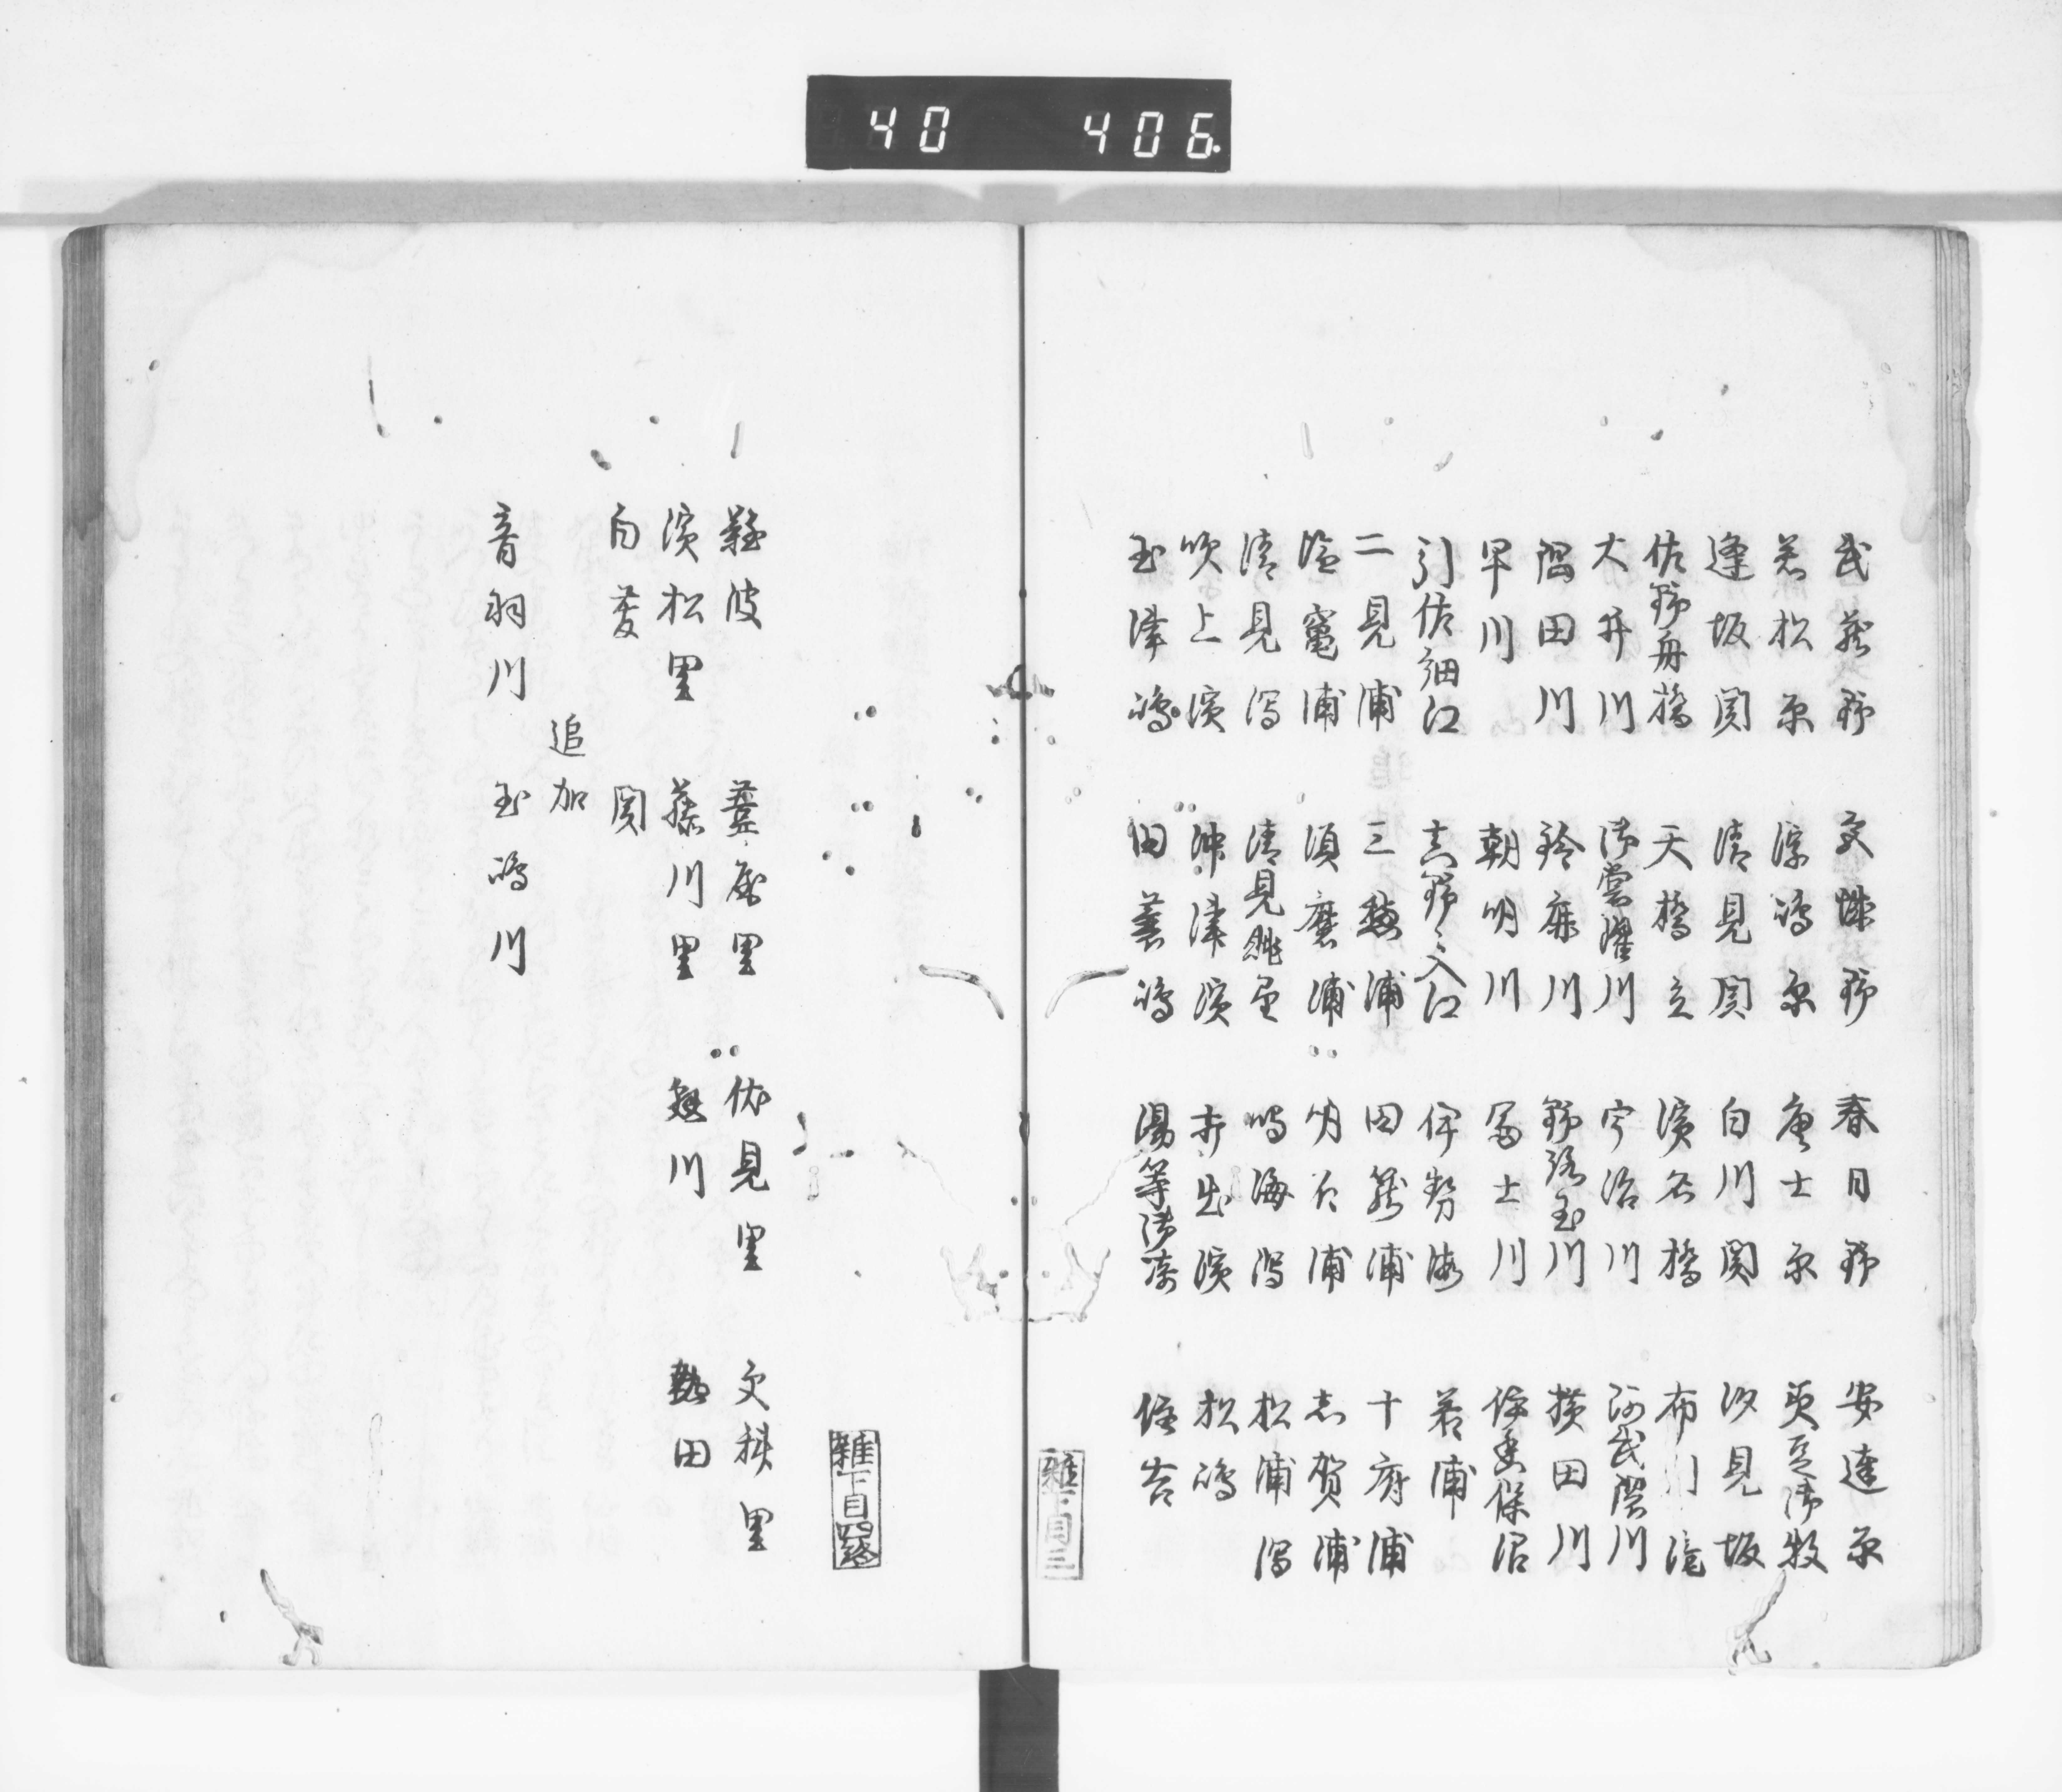 40 406
武蔵野 交野 春日野 安達原
若松原 浮嶋原 唐士原 美豆御牧
逢坂関 清見関 白川関 汐見坂
佐野舟橋 天橋立 濱名橋 布引滝
大井川 御裳濯川 宇治川 阿武隈川
隅田川 鈴鹿川 野路玉川 横田川
早川 朝明川 冨士川 伊香保沼
引佐細江 真野入江 伊勢海 若浦
二見浦 三穂浦 田籠浦 十府浦
塩竈浦 須磨浦 明石浦 志賀浦
清見潟 清見眺望 鳴海潟 松浦潟
吹上濱 沖津濱 打出濱 松嶋
玉津嶋 田蓑嶋 湯等御湊 住吉
雑下目三
雑下目四終
難波 葦屋里 伏見里 更科里
濱松里 藤川里 魁川 熱田
白菱 関
追加
音羽川 玉嶋川